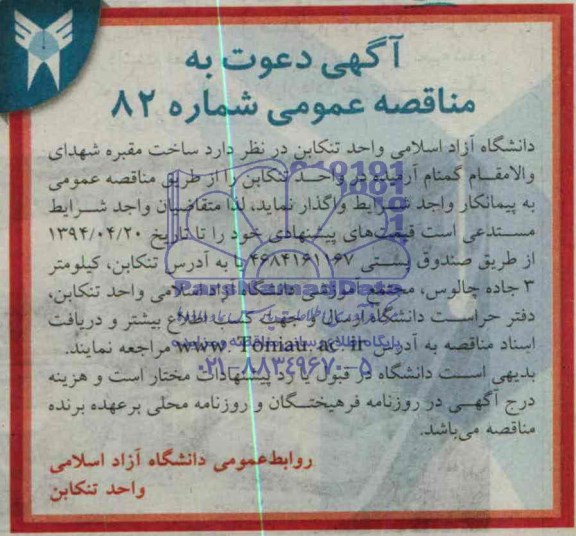 آگهی دعوت به
مناقصه عمومی شماره ۸۲
دانشگاه آزاد اسلامی واحد تنکابن در نظر دارد ساخت مقبره شهدای
والامقام گمنام آرمیده در واحد تنکابن را از طریق مناقصه عمومی
به پیمانکار واجد شرایط واگذار نماید، لذا متقاضیان واجد شرایط
مستدعی است قیمت‌های پیشنهادی خود را تا تاریخ ۱۳۹۴/۰۴/۲۰
از طریق صندوق پستی ۴۶۸۴۱۶۱۱۶۷ یا به آدرس تنکابن، کیلومتر
۳ جاده چالوس، مجتمع آموزشی دانشگاه آزاد اسلامی واحد تنکابن،
دفتر حراست دانشگاه ارسال و جهت کسب اطلاع بیشتر و دریافت
اسناد مناقصه به آدرس www.Toniau.ac.ir مراجعه نمایند.
بدیهی است دانشگاه در قبول یا رد پیشنهادات مختار است و هزینه
درج آگهی در روزنامه فرهیختگان و روزنامه محلی برعهده برنده
مناقصه می‌باشد.
روابط‌عمومی دانشگاه آزاد اسلامی
واحد تنکابن
ParsNamadData
۰۲۱-۸۸۳۴۹۶۷۰-۵